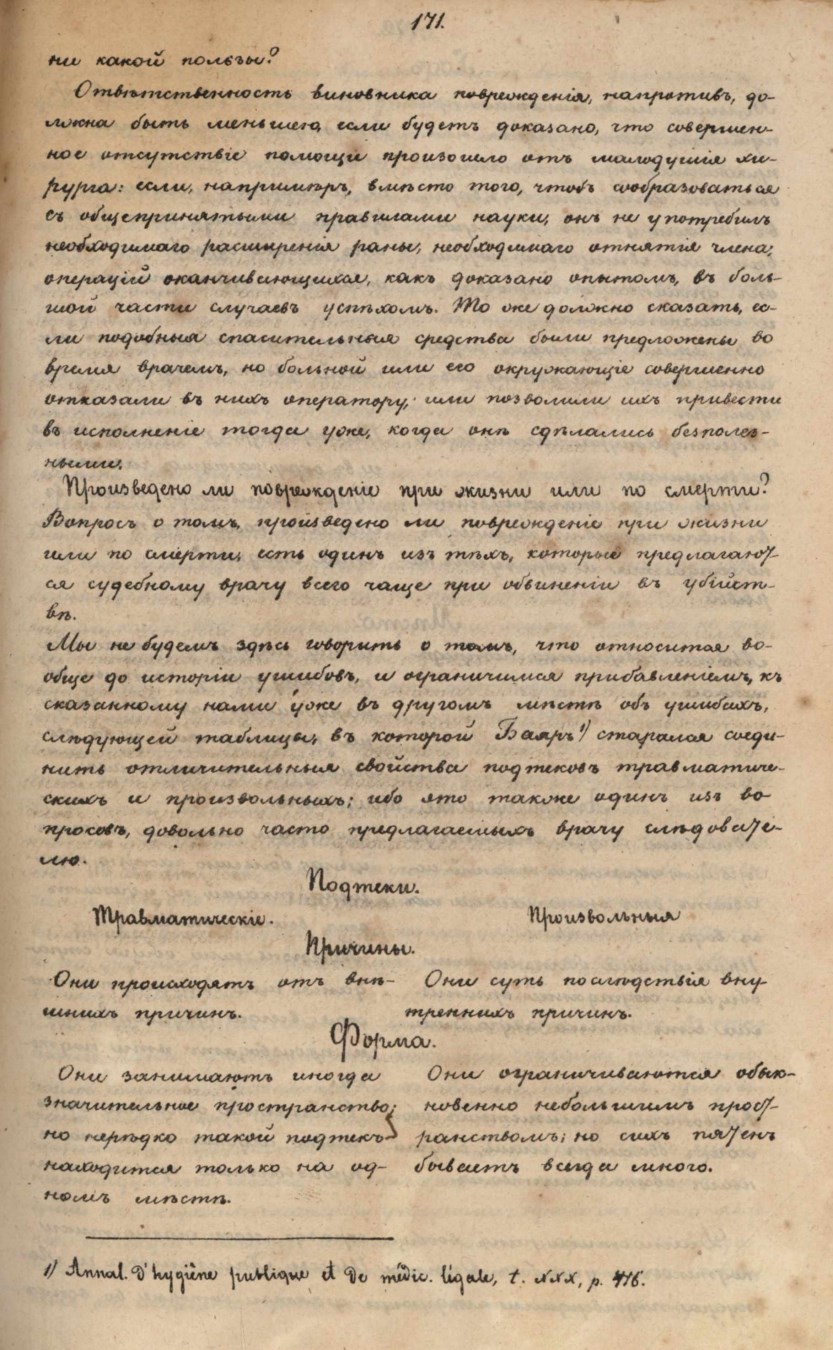 171.
ни какой пользы?
Отвѣтственность виновника поврежденія, напротивъ, до-
лжна быть меньшею, если будетъ доказано, что совершен-
ное отсутствіе помощи произошло отъ малодушія хи-
рурга: если, напримѣръ, вмѣсто того, чтобъ сообразоваться
съ общепринятыми правилами науки, онъ не употребилъ
необходимаго расширенія раны, необходимаго отнятія члена,
операцій оканчивающихся, какъ доказано опытомъ, въ боль-
шой части случаевъ успѣхомъ. То же должно сказать, ес-
ли подобныя спасительныя средства были предложены во
время врачемъ, но больной или его окружающіе совершенно
отказали въ нихъ оператору, или позволили ихъ привести
въ исполненіе тогда уже, когда онѣ сдѣлались безполез-
ными.
Произведено ли поврежденіе при жизни или по смерти?
Вопросъ о томъ, произведено ли поврежденіе при жизни
или по смерти, есть одинъ изъ тѣхъ, которые предлагают-
ся судебному врачу всего чаще при обвиненіи въ убійст-
вѣ.
Мы не будемъ здѣсь говорить о томъ, что относится во-
обще до исторіи ушибовъ, и ограничимся прибавленіемъ, къ
сказанному нами уже въ другомъ мѣстѣ объ ушибахъ,
слѣдующей таблицы, въ которой Баяръ 1) старался соеди-
нить отличительныя свойства подтековъ травматиче-
скихъ и произвольныхъ; ибо это также одинъ изъ во-
просовъ, довольно часто предлагаемыхъ врачу слѣдовате-
лю.
Подтеки.
Травматическіе. Произвольныя
Причины.
Они происходятъ отъ внѣ- Они суть послѣдствія вну-
шнихъ причинъ. треннихъ причинъ.
Форма.
Они занимаютъ иногда Они ограничиваются обык-
значительное пространство; новенно небольшимъ прост-
но нерѣдко такой подтекъ ранствомъ; но сихъ пятенъ
находится только на од- бываетъ всегда много.
номъ мѣстѣ.
1) Annal. d'hygiène publique et de médic. légale, t. XXX, p. 416.